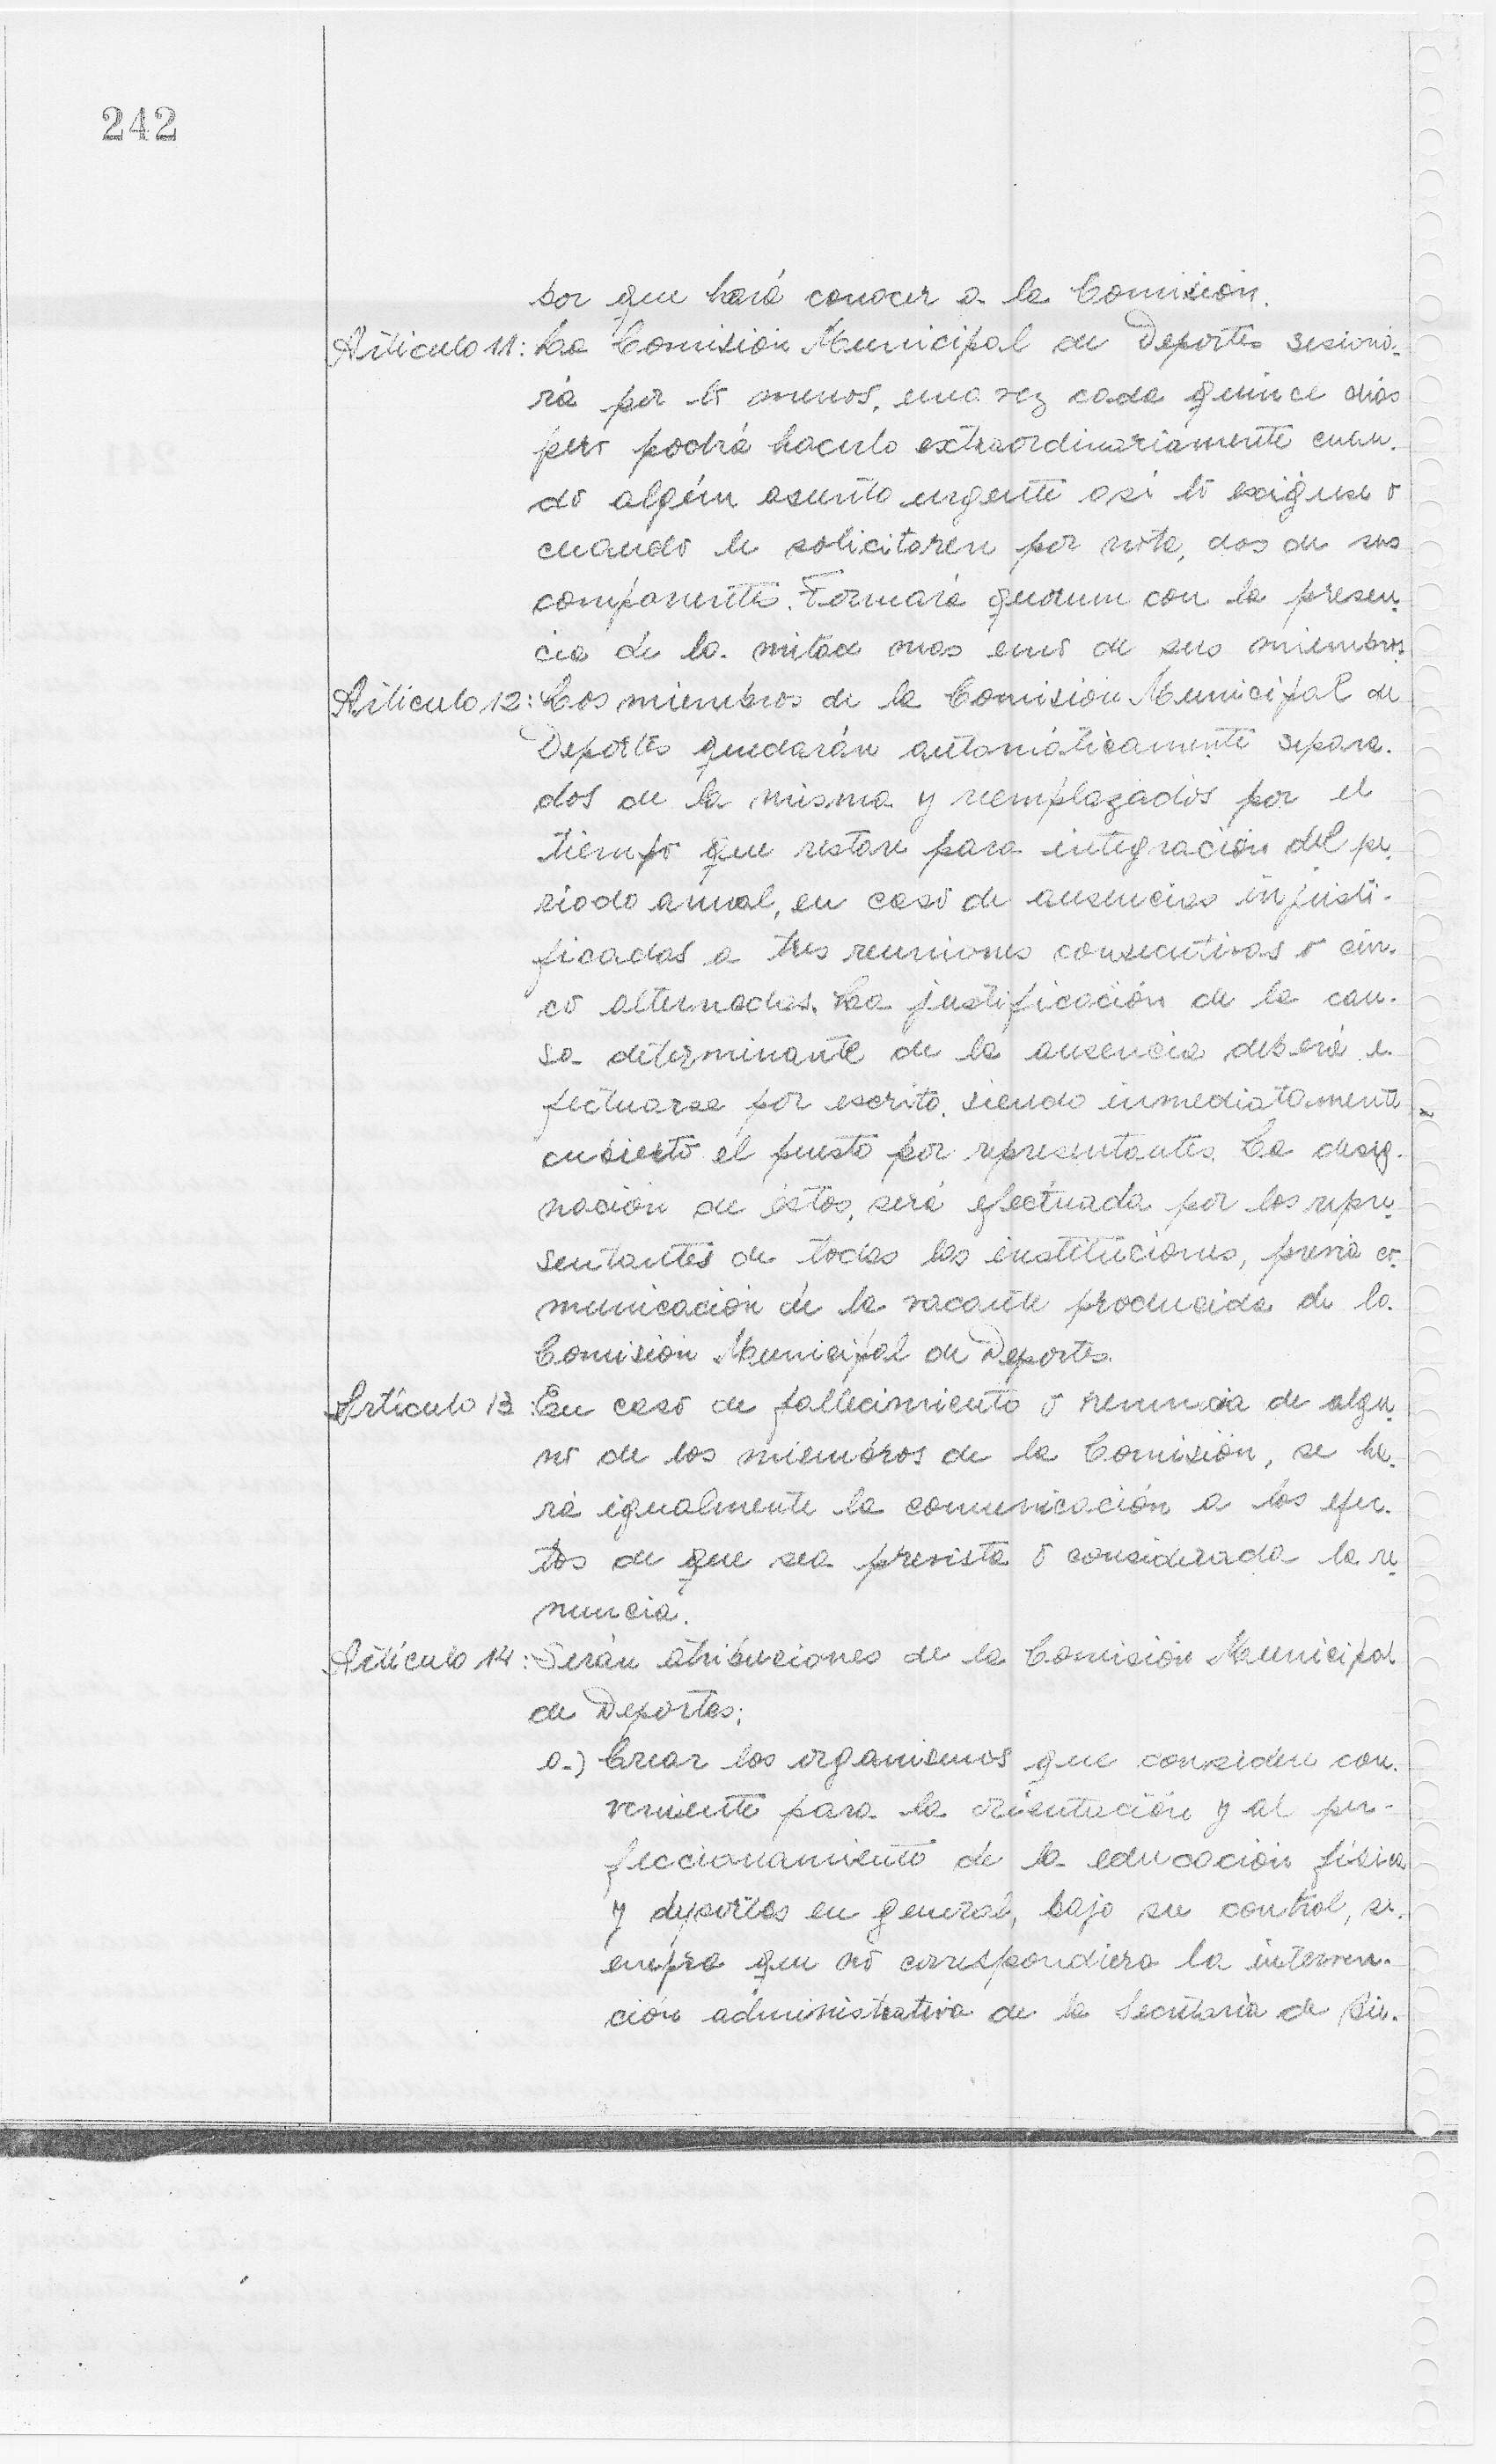 242
sor que hará conocer a la Comisión.
Artículo 11: La Comisión Municipal de Deportes sesiona-
rá por lo menos, una vez cada quince dias
pero podrá hacerlo extraordinariamente cuan-
do algún asunto urgente asi lo exigiese o
cuando le solicitaren por nota, dos de sus
componentes. Formará quorum con la presen-
cia de la mitad mas uno de sus miembros
Artículo 12: Los miembros de la Comisión Municipal de
Deportes quedarán automáticamente separa-
dos de la misma y reemplazados por el
tiempo que restare para integración del pe-
riodo anual, en caso de ausencias injusti-
ficadas a tres reuniones consecutivas o cin-
co alternadas. La justificación de la cau-
sa determinante de la ausencia deberá e-
fectuarse por escrito, siendo inmediatamente
cubierto el puesto por representantes. La desig-
nación de éstos, será efectuada por los repre-
sentantes de todas las instituciones, previa co-
municación de la vacante producida de la
Comisión Municipal de Deportes.
Artículo 13: En caso de fallecimiento o renuncia de algu-
no de los miembros de la Comisión, se ha-
rá igualmente la comunicación a los efec-
tos de que sea prevista o considerada la re-
nuncia.
Artículo 14: Serán atribuciones de la Comisión Municipal
de Deportes:
a.) Crear los organismos que considere con-
veniente para la orientación y al per-
feccionamiento de la educación física
y deportes en general, bajo su control, si-
empre que no correspondiera la interven-
ción administrativa de la Secretaría de